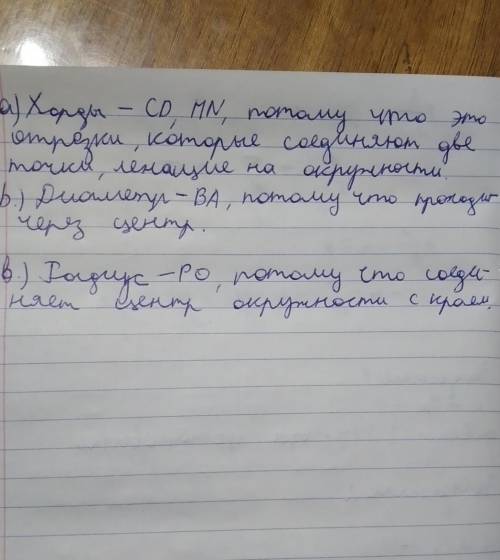 а) Хорды – CD, MN, потому что это
отрезки, которые соединяют две
точки, лежащие на окружности.
b.) Диаметр – BA, потому что проходит
через центр.
в.) Радиус – PO, потому что соеди-
няет центр окружности с краем.